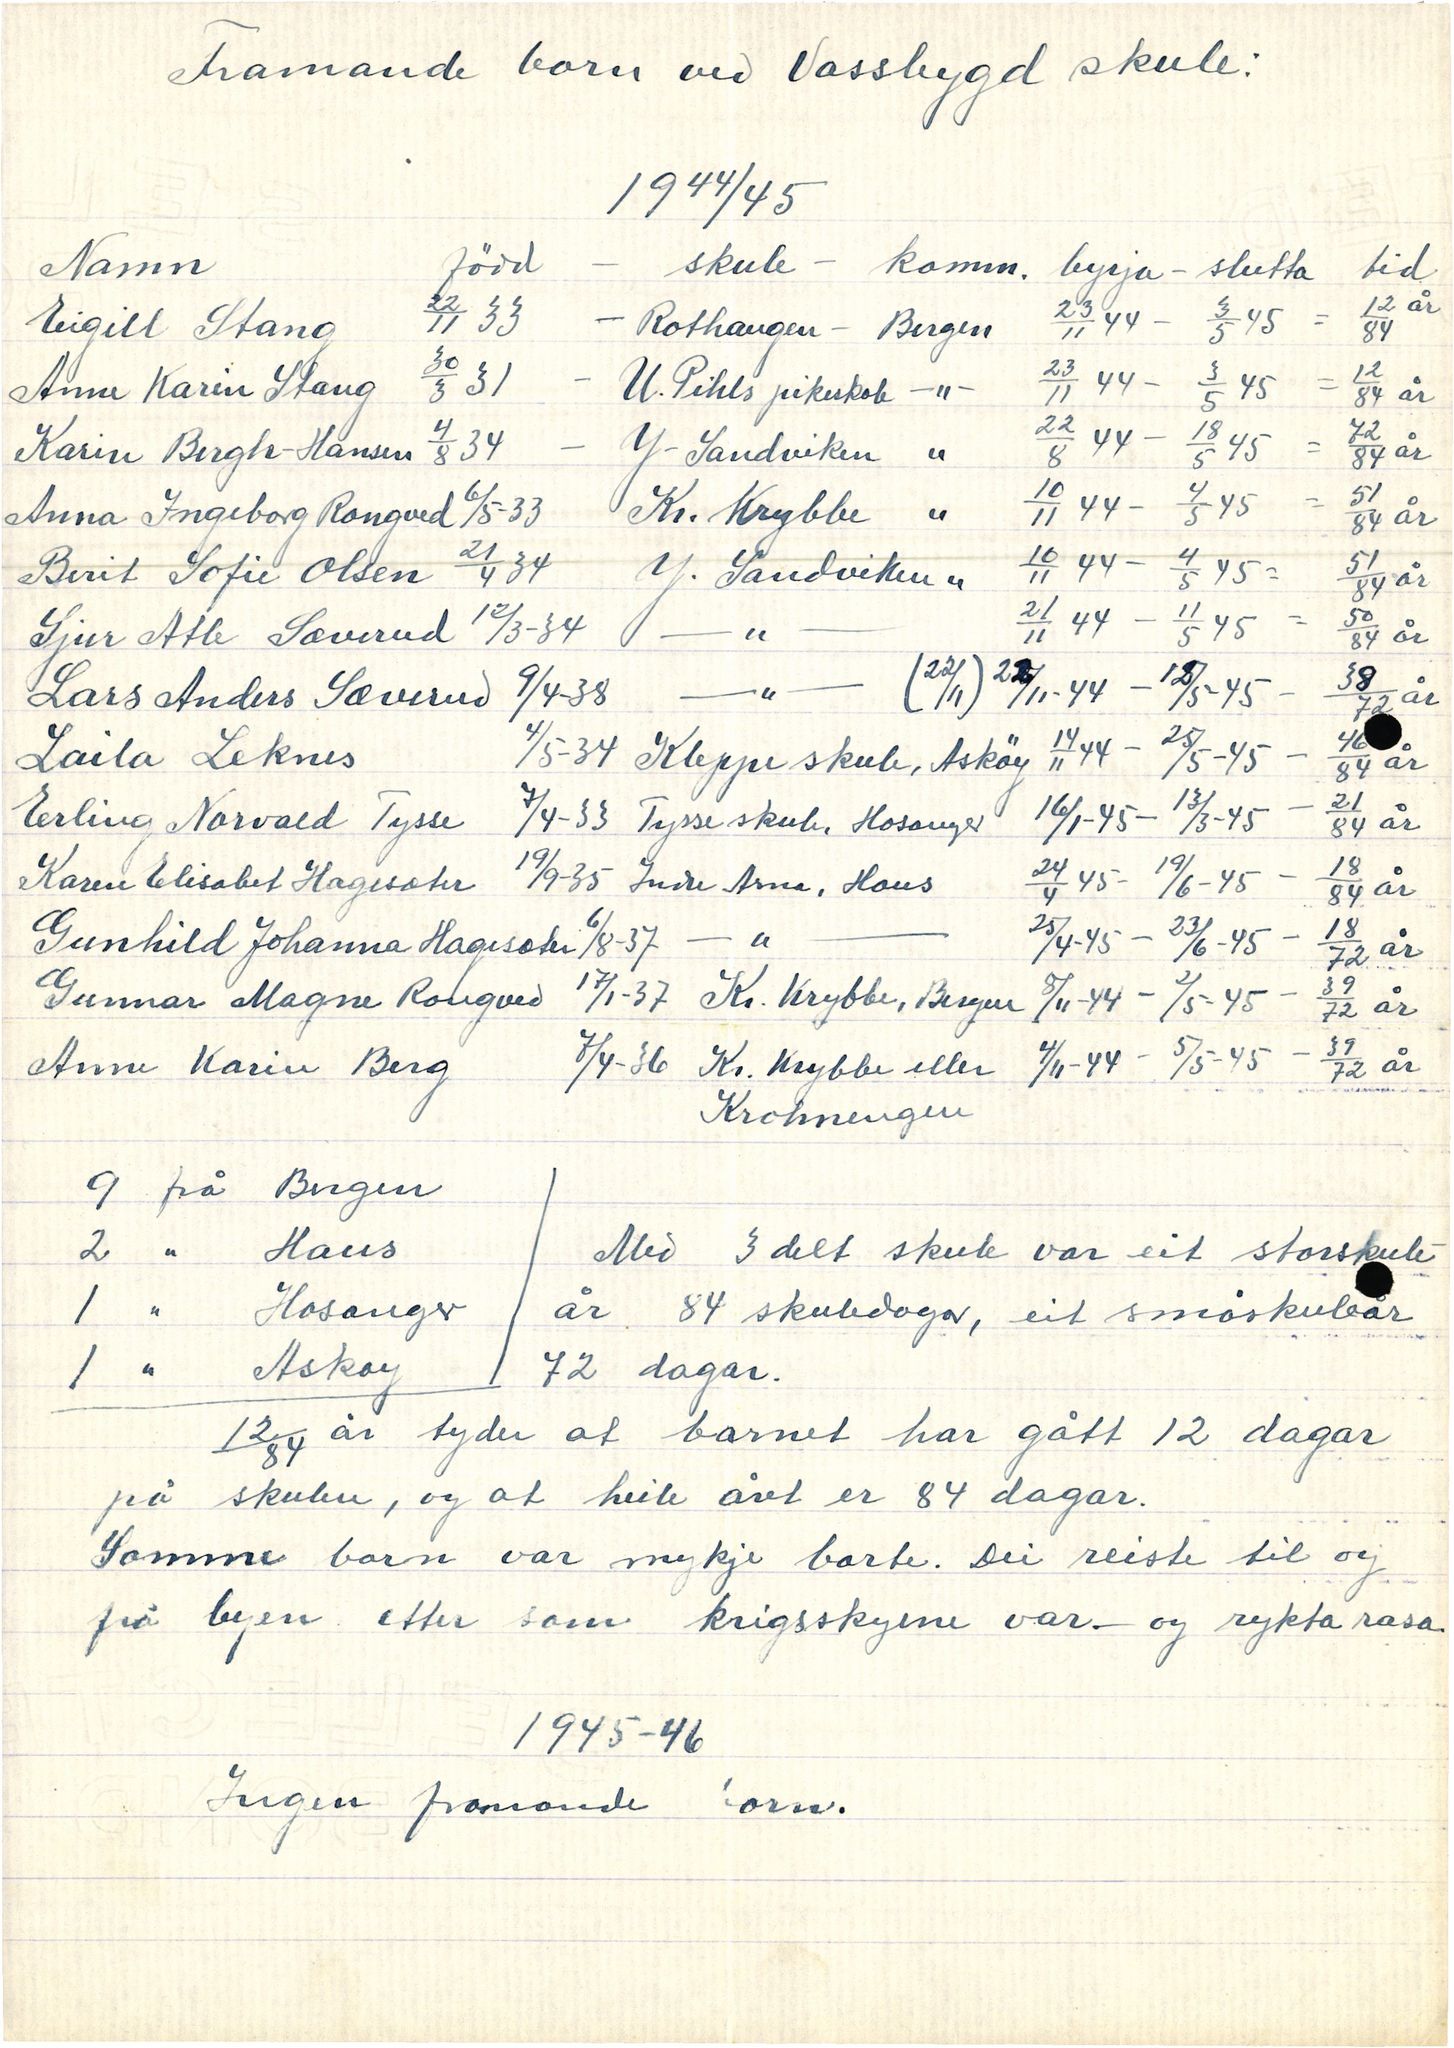 Framande born ved Vassbygd skule:
1944/45
Namn född - skule - komm. byrja - slutta tid
Eigill Stang 22/11 33 - Rothaugen - Bergen 23/11 44 - 3/5 45 = 12/84 år
Anne Karin Stang 30/3 31 - U. Pihls pikeskole -"- 23/11 44 - 3/5 45 = 12/84 år
Karin Bergh-Hansen 4/8 34 - Y-Sandviken " 22/8 44 - 18/5 45 = 72/84 år
Anna Ingeborg Rongved 6/5-33 Kr. Krybbe " 10/11 44 - 4/5 45 = 51/84 år
Berit Sofie Olsen 21/4 34 Y. Sandviken " 10/11 44 - 4/5 45 = 51/84 år
Sjur Atle Sæverud 12/3-34 -"- 21/11 44 - 11/5 45 = 50/84 år
Lars Anders Sæverud 9/4-38 -"- (22/11) 22/11-44 - 12/5-45 - 38/72 år
Laila Leknes 4/5-34 Kleppe skule, Asköy 14/11 44 - 25/5-45 - 46/84 år
Erling Norvald Tysse 7/4-33 Tysse skule, Hosanger 16/1-45 - 13/3-45 - 21/84 år
Karen Elisabet Hagesæter 19/9-35 Indre Arna, Haus 24/4 45 - 19/6-45 - 18/84 år
Gunhild Johanna Hagesæter 6/8-37 -"- 25/4-45 - 23/6-45 - 18/72 år
Gunnar Magne Rongved 17/1-37 Kr. Krybbe, Bergen 8/11-44 - 2/5-45 - 39/72 år
Anne Karin Berg 7/4-36 Kr. Krybbe eller 4/11-44 - 5/5-45 - 39/72 år
Krohnengen
9 frå Bergen
2 " Haus Med 3 delt skule var eit storskule-
1 " Hosanger år 84 skuledagar, eit småskuleår
1 " Askøy 72 dagar.
12/84 år tyder at barnet har gått 12 dagar
på skulen, og at heile året er 84 dagar.
Somme born var mykje borte. Dei reiste til og
frå byen etter som krigsskyene var - og rykta rasa.
1945-46
Ingen framande born.